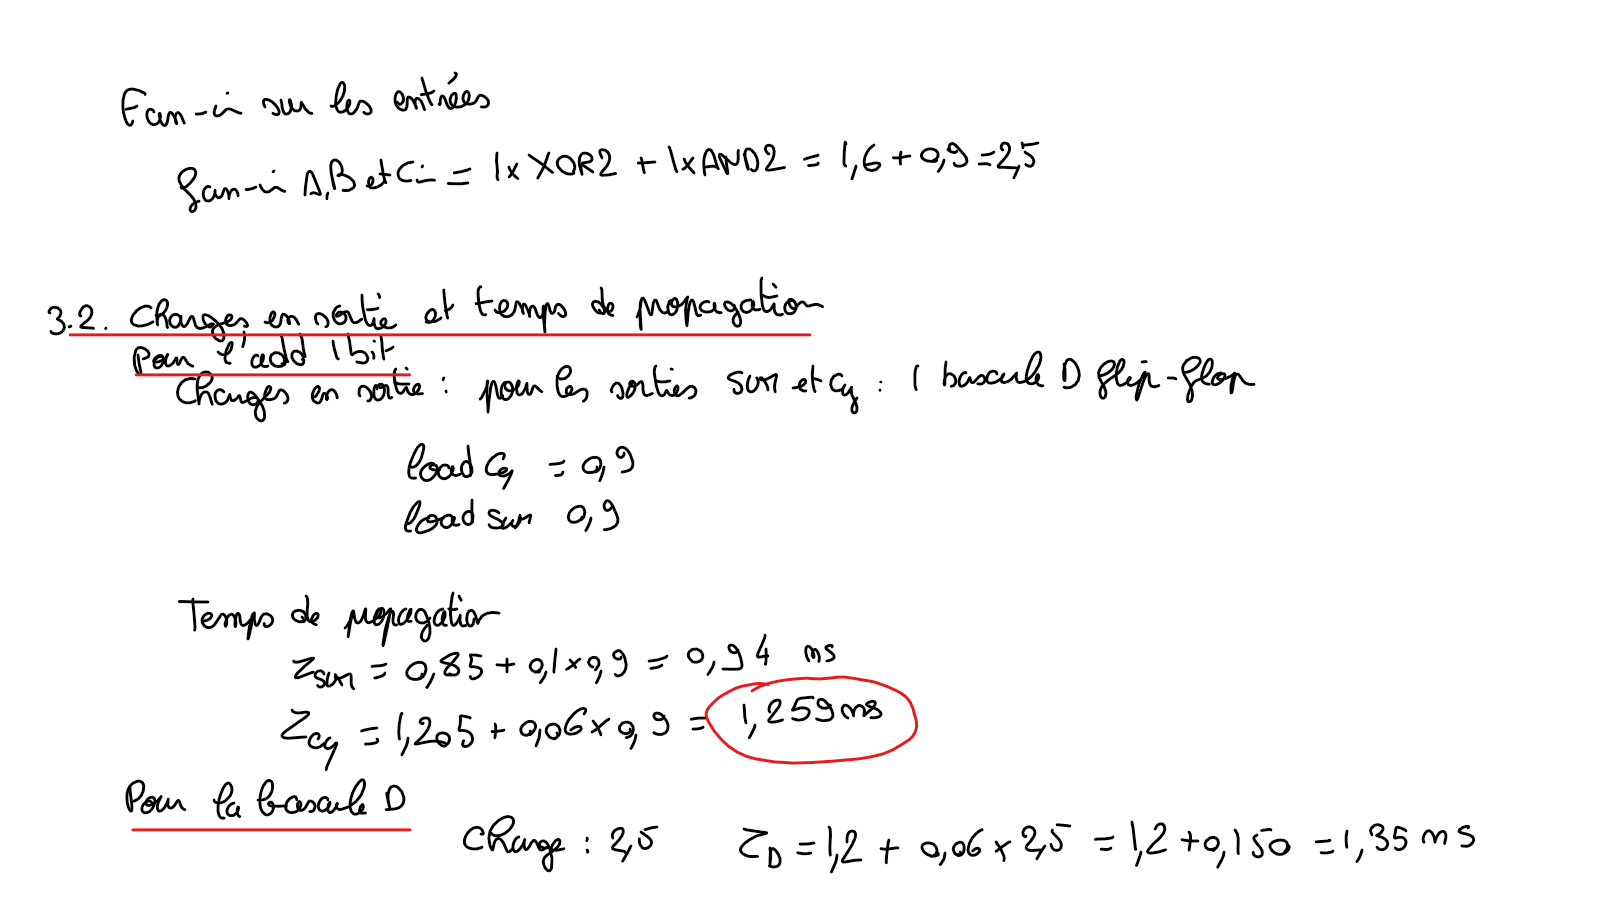 Fan-in sur les entrées
fan-in A,B et Cin = 1x XOR2 + 1xAND2 = 1,6 + 0,9 = 2,5
3.2. Charges en sortie et temps de propagation
Pour l'add 1 bit
Charges en sortie : pour les sorties sum et Cy : 1 bascule D flip-flop
load Cy = 0,9
load sum 0,9
Temps de propagation
τsum = 0,85 + 0,1 x 0,9 = 0,94 ns
τCy = 1,205 + 0,06 x 0,9 = 1,259 ns
Pour la bascule D
Charge : 2,5 τD = 1,2 + 0,06 x 2,5 = 1,2 + 0,150 = 1,35 ns